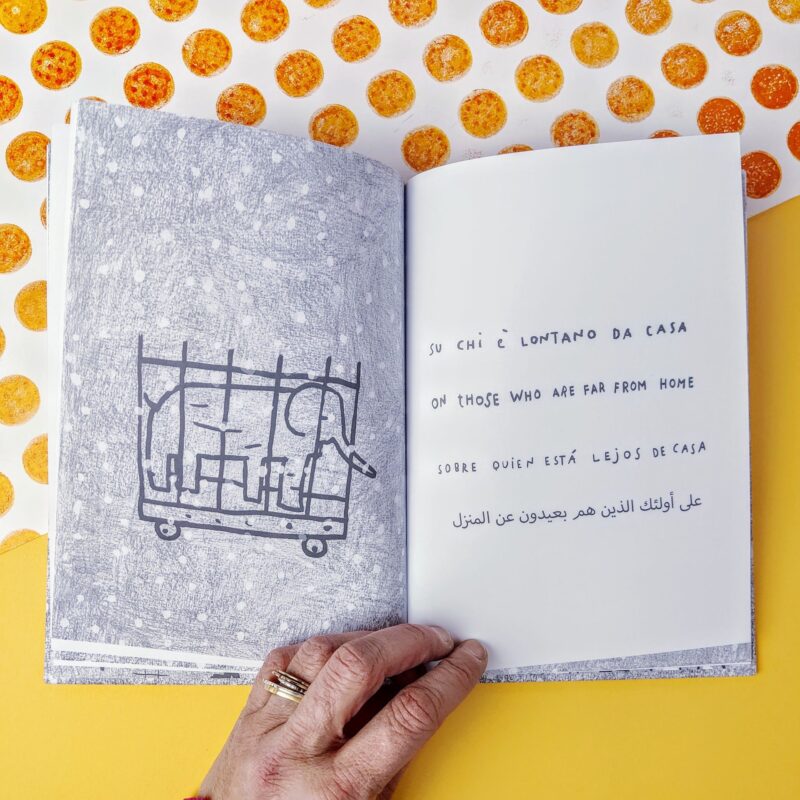 SU CHI È LONTANO DA CASA
ON THOSE WHO ARE FAR FROM HOME
SOBRE QUIEN ESTÁ LEJOS DE CASA
على أولئك الذين هم بعيدون عن المنزل